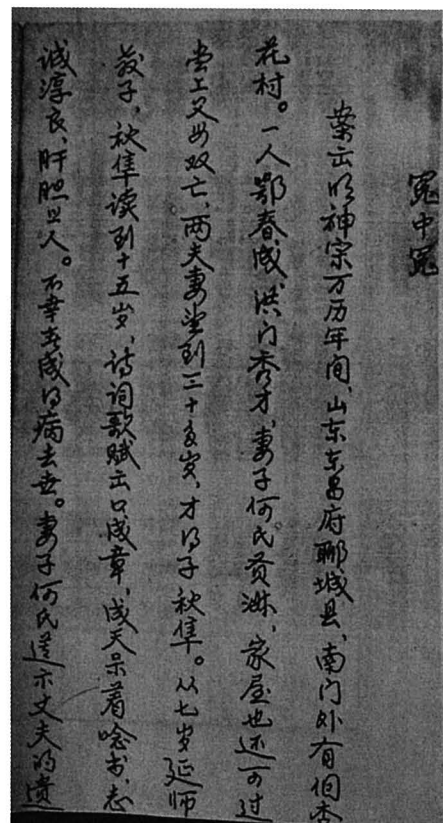 冤中冤
案出明神宗万历年间，山东东昌府聊城县，南门外有個杏
花村。一人鄂春成，洪门秀才，妻子何氏贡淋，家屋也还可过
堂上父母双亡，两夫妻坐到三十多岁，才得子秋隼。从七岁延师
教子，秋隼读到十五岁，诗词歌赋出口成章，成天呆着唸书，志
诚淳良，肝胆照人。不幸春成得病去世。妻子何氏遵示丈夫的遗